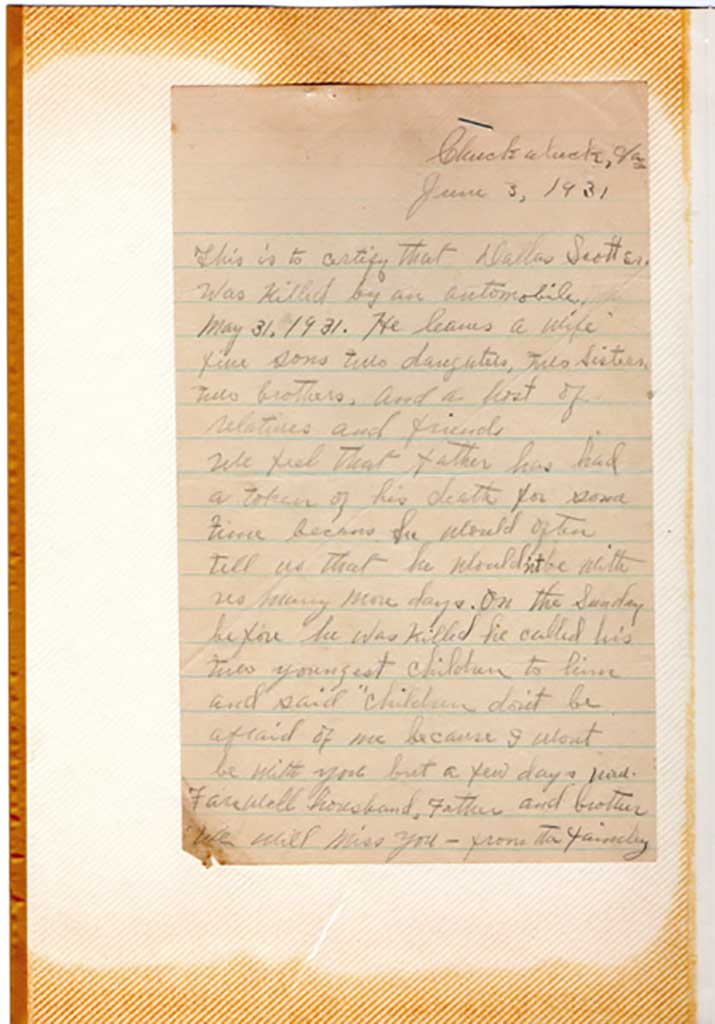 Chuckatuck, Va
June 3, 1931
This is to certify that Dallas Scott Sr.
Was Killed by an automobile,
May 31, 1931. He leaves a wife
five sons two daughters, two Sisters
two brothers, and a host of
relatives and friends
We feel that Father has had
a token of his death for some
time becaus he would often
tell us that he wouldn't be with
us many more days. On the Sunday
before he was Killed he called his
two youngest children to him
and said "children don't be
afraid of me because I wont
be with you but a few days
Farewell housband, Father and brother
We will Miss You – from the Faimley